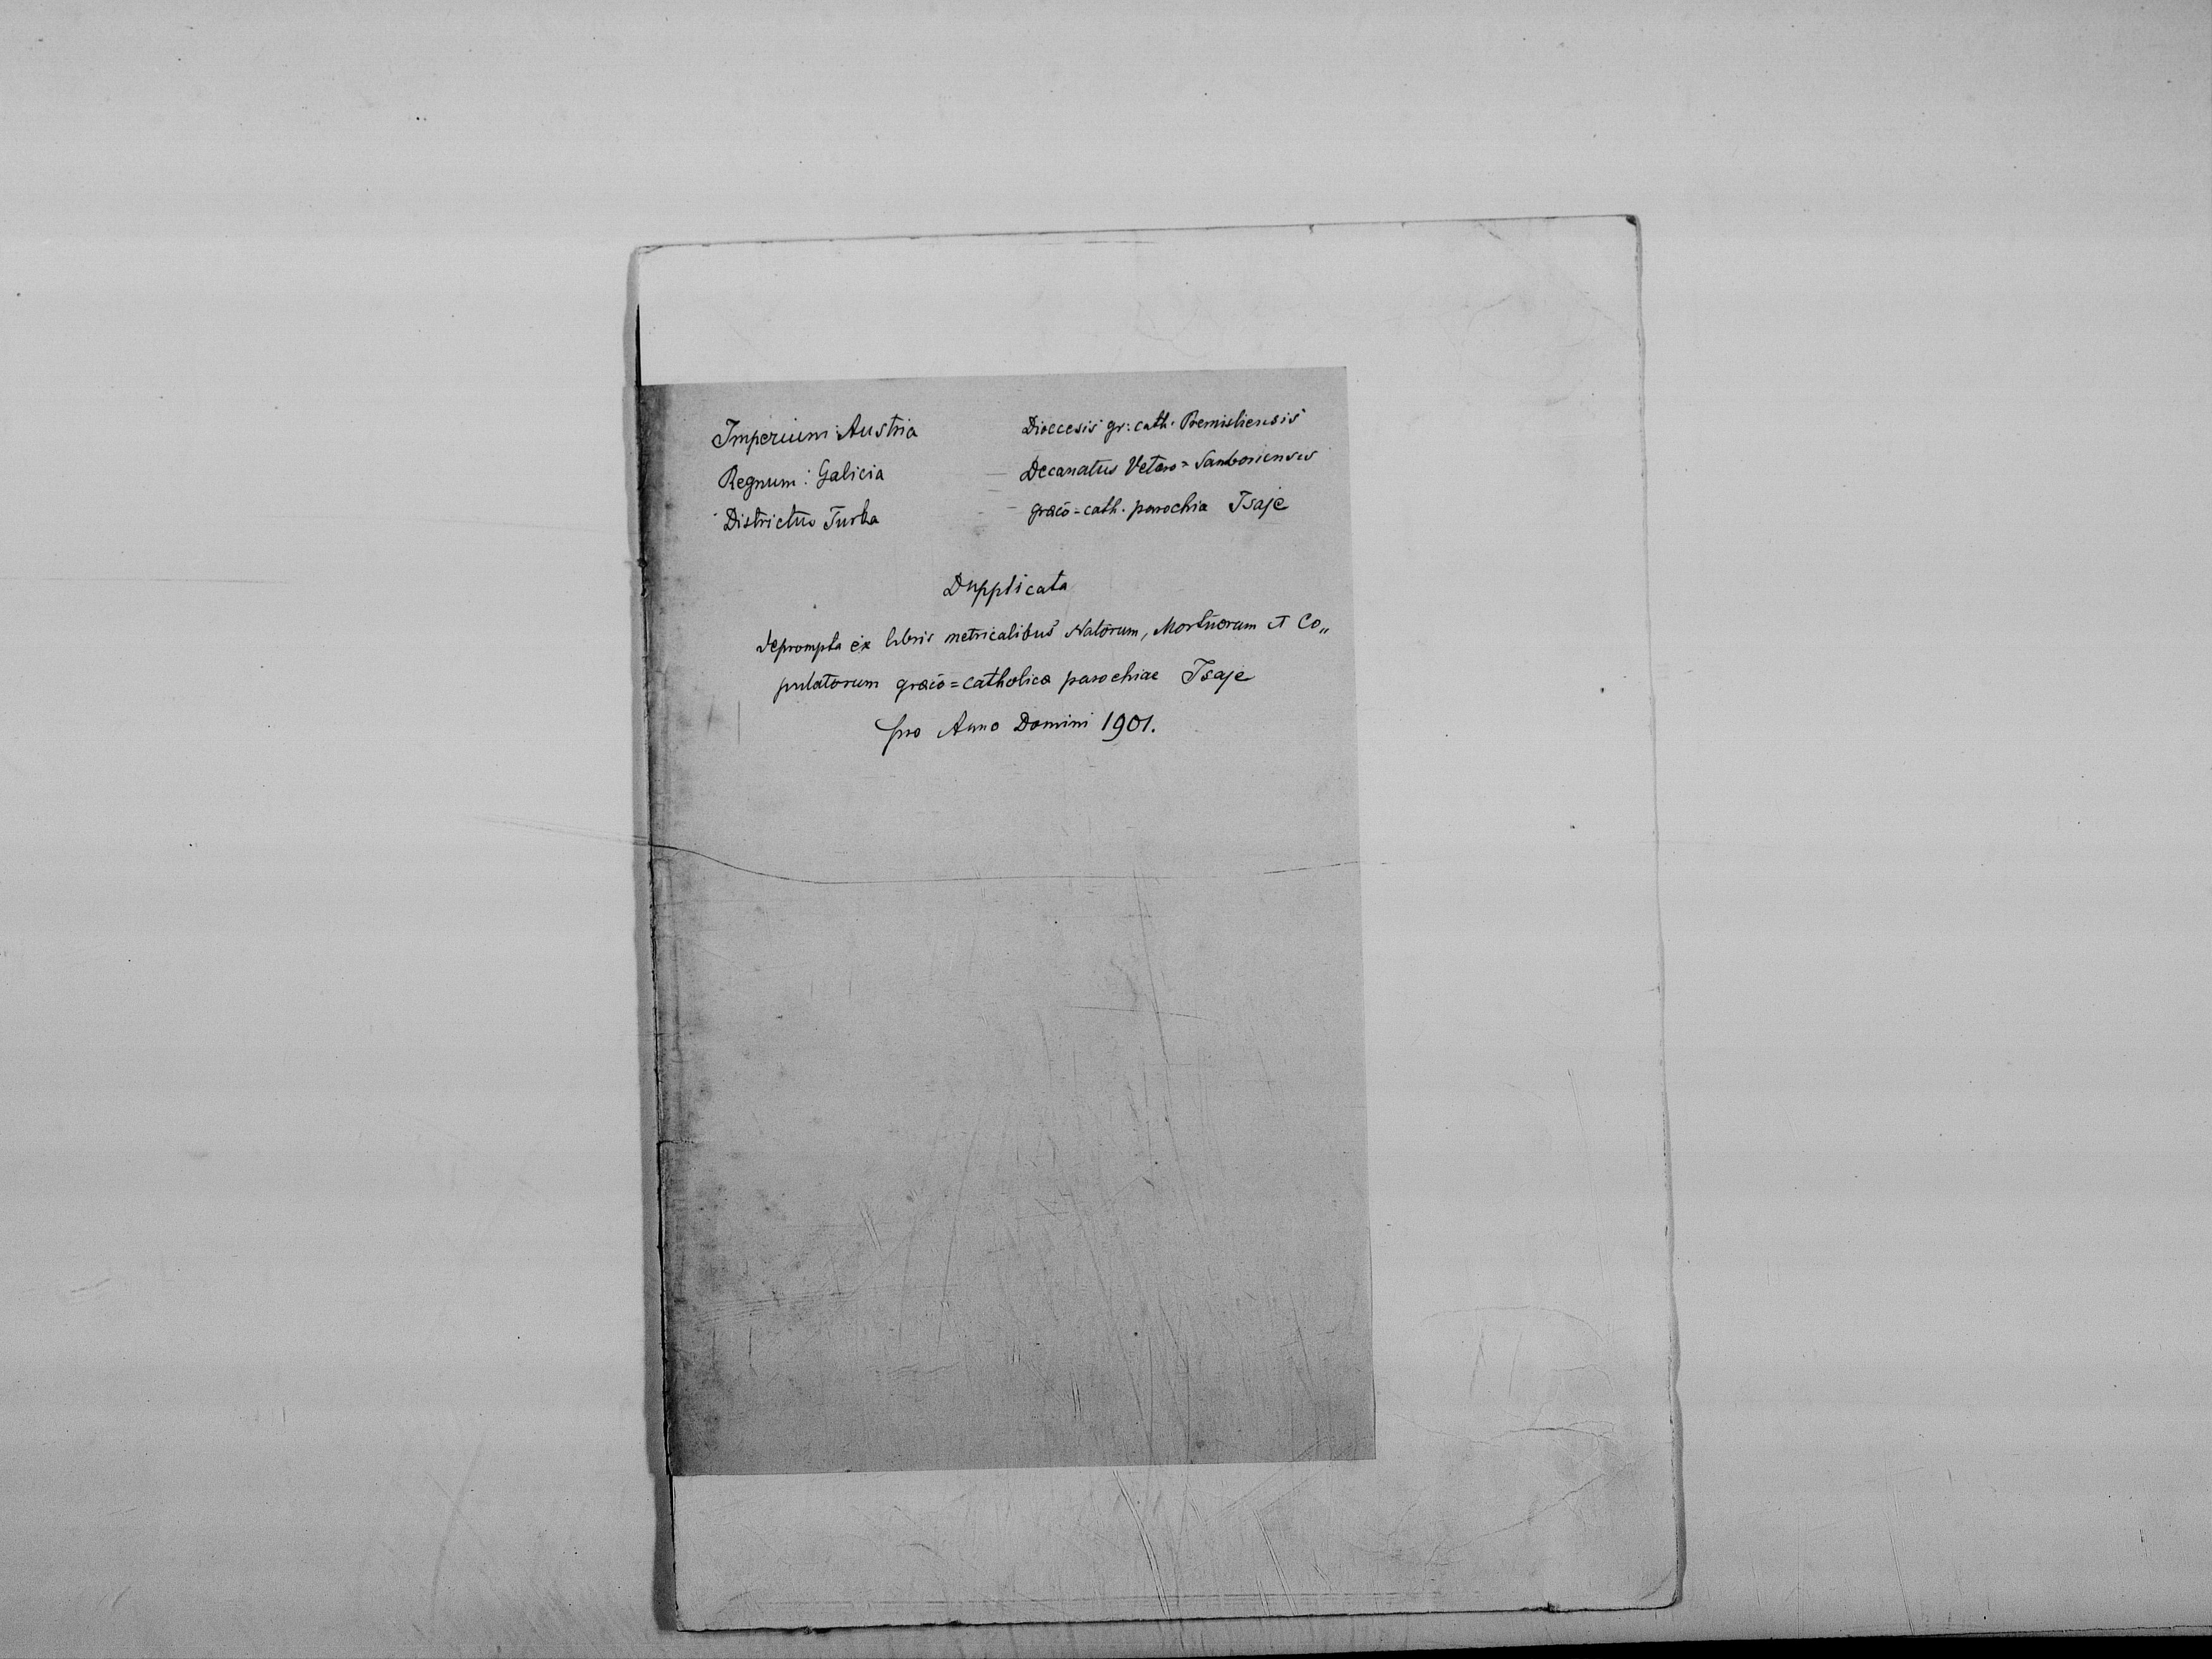 Imperium: Austria
Regnum: Galicia
Districtus Turka
Dioecesis gr: cath. Premisliensis
Decanatus Vetero=Samboriensis
graeco=cath. parochia Isaje
Dupplicata
deprompta ex libris metricalibus Natorum, Mortuorum et Co„
pulatorum graeco=catholicae parochiae Isaje
pro Anno Domini 1901.